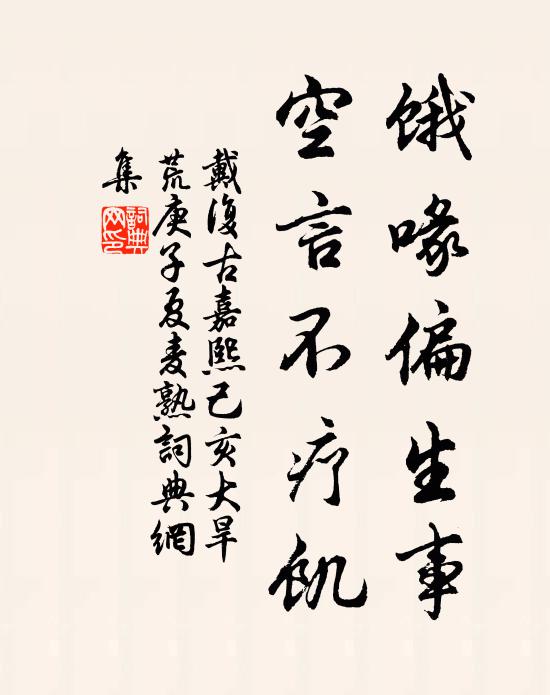 饿喙偏生事
空言不疗飢
戴復古嘉熙己亥大旱
荒庚子夏麦熟詞典網
集
詞典
网印